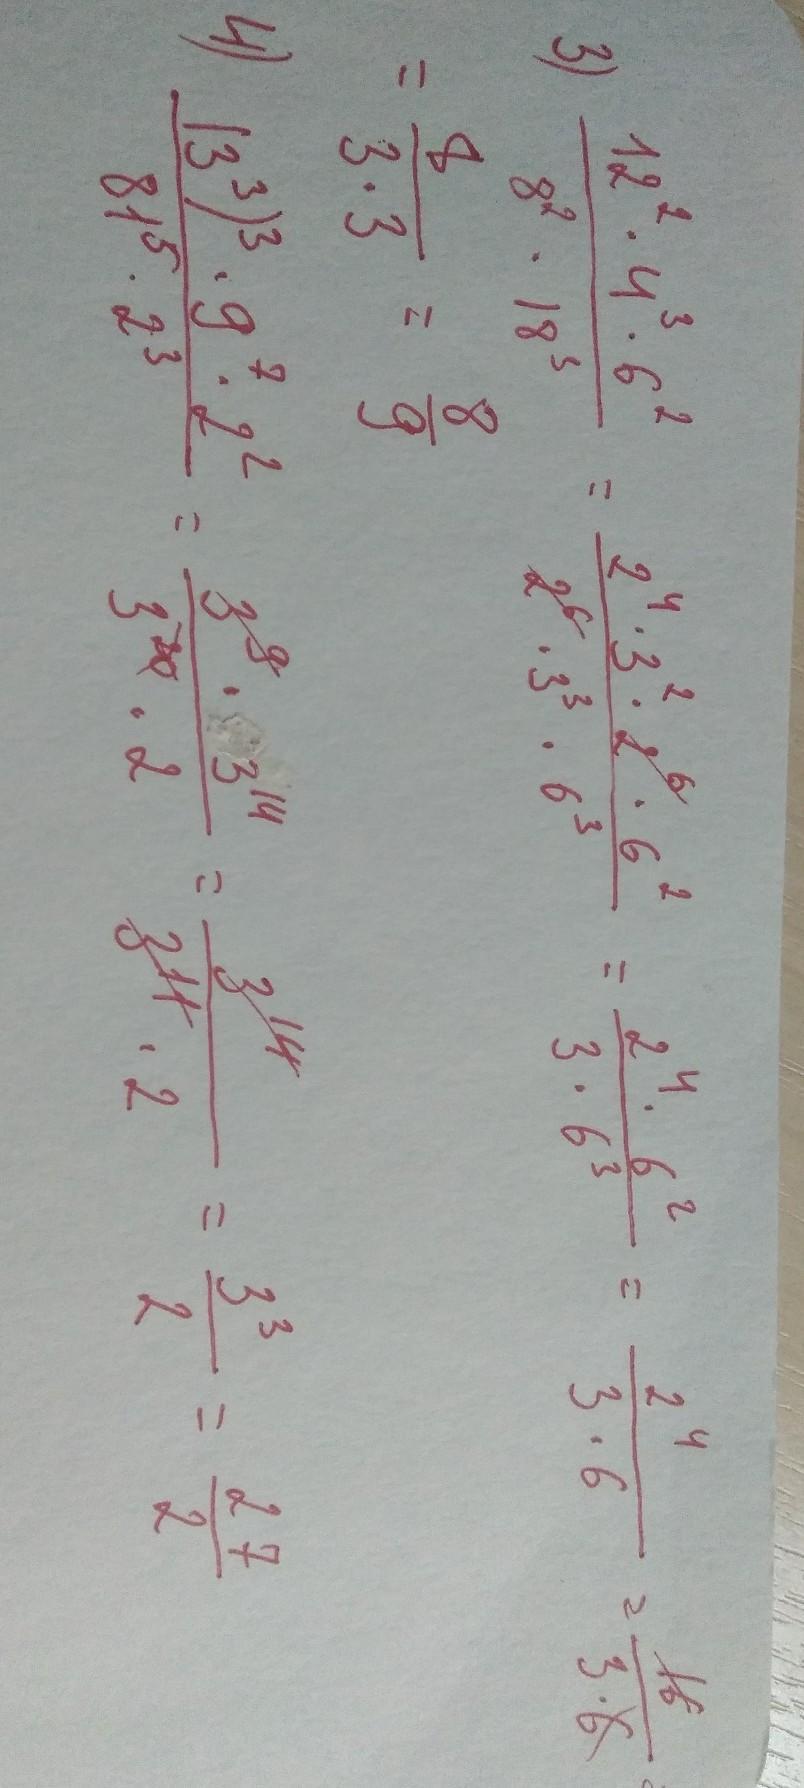 3) \frac{12^2 · 4^3 · 6^2}{8^2 · 18^3} = \frac{2^4 · 3^2 · 2^6 · 6^2}{2^6 · 3^3 · 6^3} = \frac{2^4 · 6^2}{3 · 6^3} = \frac{2^4}{3 · 6} = \frac{16}{3 · 6} =
= \frac{8}{3 · 3} = \frac{8}{9}
4) \frac{(3^3)^3 · 9^7 · 2^2}{81^5 · 2^3} = \frac{3^9 · 3^{14}}{3^{20} · 2} = \frac{3^{14}}{3^{11} · 2} = \frac{3^3}{2} = \frac{27}{2}